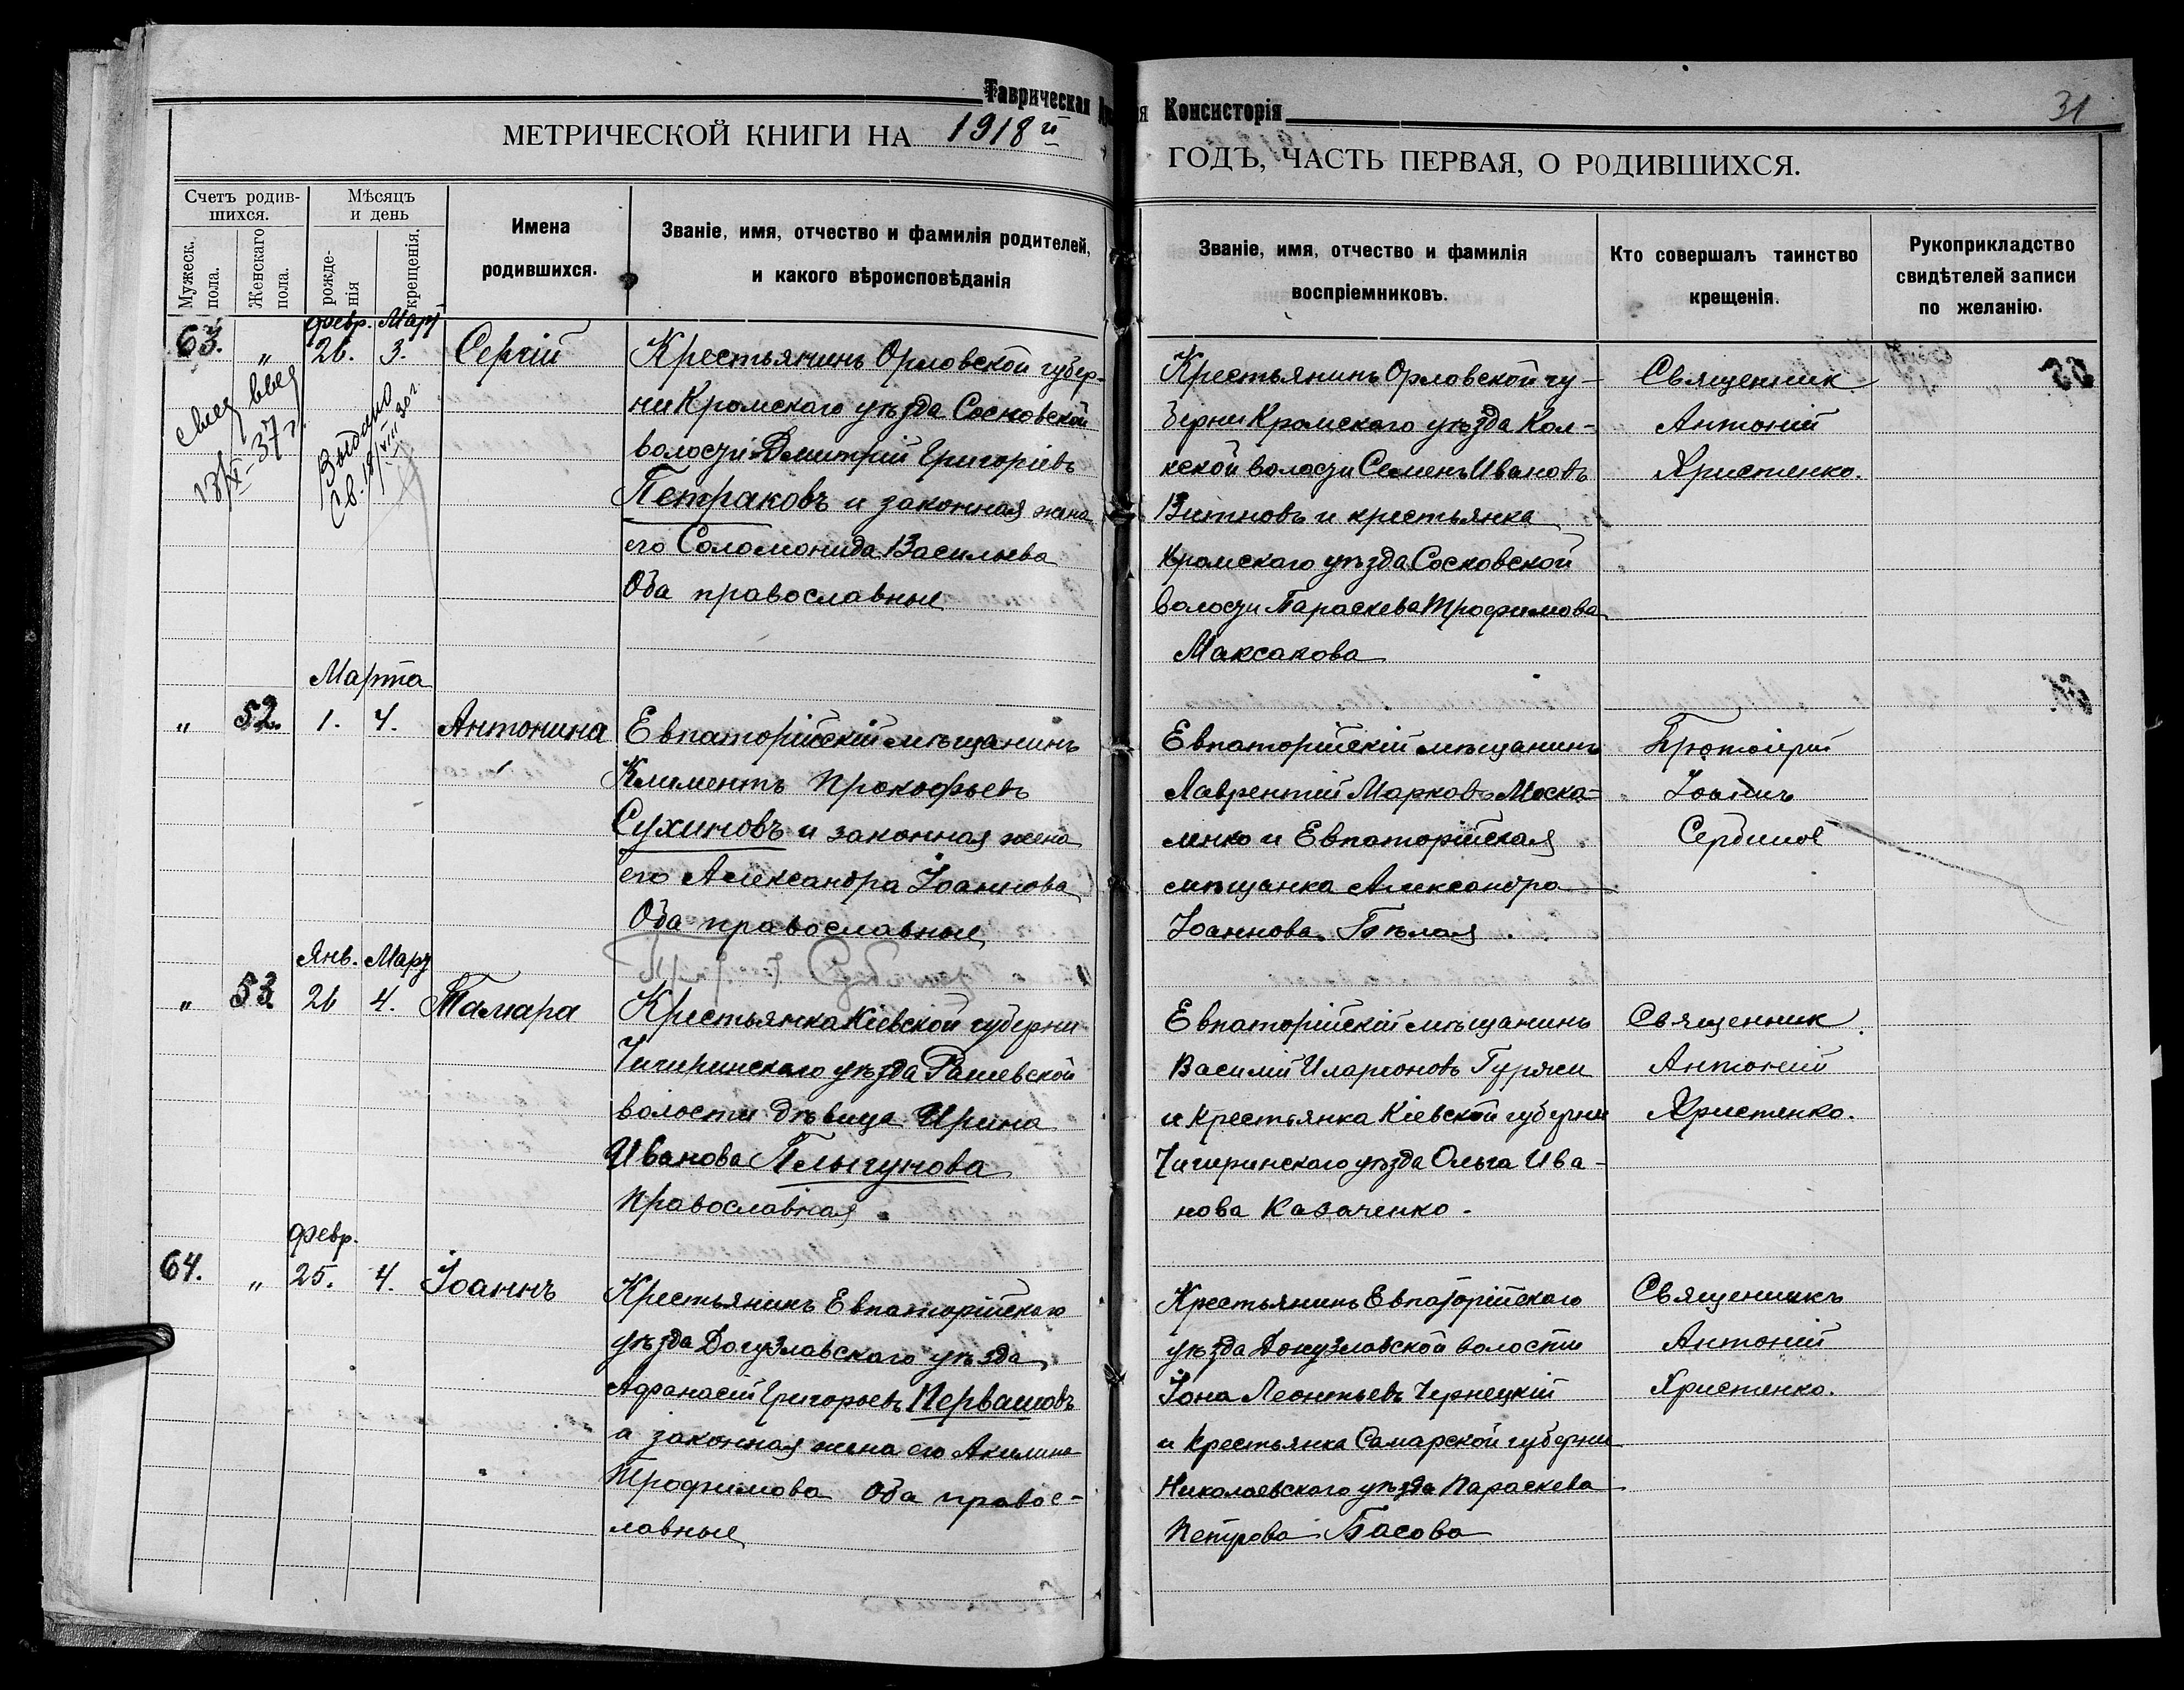 Таврическая
я Консисторія
31
МЕТРИЧЕСКОЙ КНИГИ НА 1918й
ГОДЪ, ЧАСТЬ ПЕРВАЯ, О РОДИВШИХСЯ.
Счетъ родив-
шихся.
Мужеск.
пола.
Женскаго
пола.
Мѣсяцъ
и день
рожде-
нія
крещенія.
Имена
родившихся.
Званіе, имя, отчество и фамилія родителей,
и какого вѣроисповѣданія
Званіе, имя, отчество и фамилія
воспріемниковъ.
Кто совершалъ таинство
крещенія.
Рукоприкладство
свидѣтелей записи
по желанію.
февр. Март
63. " 26. 3. Сергій
13/XI-37г.
Выдано
Св. 18/VIII 30 г.
Крестьянинъ Орловской губер-
ни Кромского уѣзда Сосковской
волости Дмитрій Григоріевъ
Петраковъ и законная жена
его Соломонида Васильева
Оба православные
Крестьянинъ Орловской гу-
берни Кромского уѣзда Кол-
кской волости Семенъ Ивановъ
и крестьянка
Кромского уѣзда Сосковской
волости Параскева Трофимова
Максакова
Священник
Антоній
Христенко.
Марта
" 52. 1. 4. Антонина
Евпаторійскій мѣщанинъ
Климентъ Прокофьевъ
Сухиновъ и законная жена
его Александра Іоаннова
Оба православные
Евпаторійскій мѣщанинъ
Лаврентій Марковъ Моска-
ленко и Евпаторійская
мѣщанка Александра
Іоаннова Бѣлая.
Протоіерей
Іоаннъ
Сербинов
Янв. Март
" 53. 26 4. Тамара
Крестьянка Кіевской губерни
Чигиринскаго уѣзда Рашевской
волости дѣвица Ирина
Иванова Плыгунова
православная.
Евпаторійскій мѣщанинъ
Василій Иларионовъ Гурячи
и крестьянка Кіевской губерни
Чигиринскаго уѣзда Ольга Ива-
нова Казаченко.
Священник
Антоній
Христенко.
февр.
64. " 25. 4. Іоаннъ
Крестьянинъ Евпаторійскаго
уѣзда Догузлавскаго уѣзда
Афанасій Григорьевъ Первашовъ
и законная жена его Акилина
Трофимова Оба правос-
лавные
Крестьянинъ Евпаторійскаго
уѣзда Донузлавской волости
Іона Леонтьевъ Чернецкій
и крестьянка Самарской губерни
Николаевскаго уѣзда Параскева
Петрова Басова
Священникъ
Антоній
Христенко.